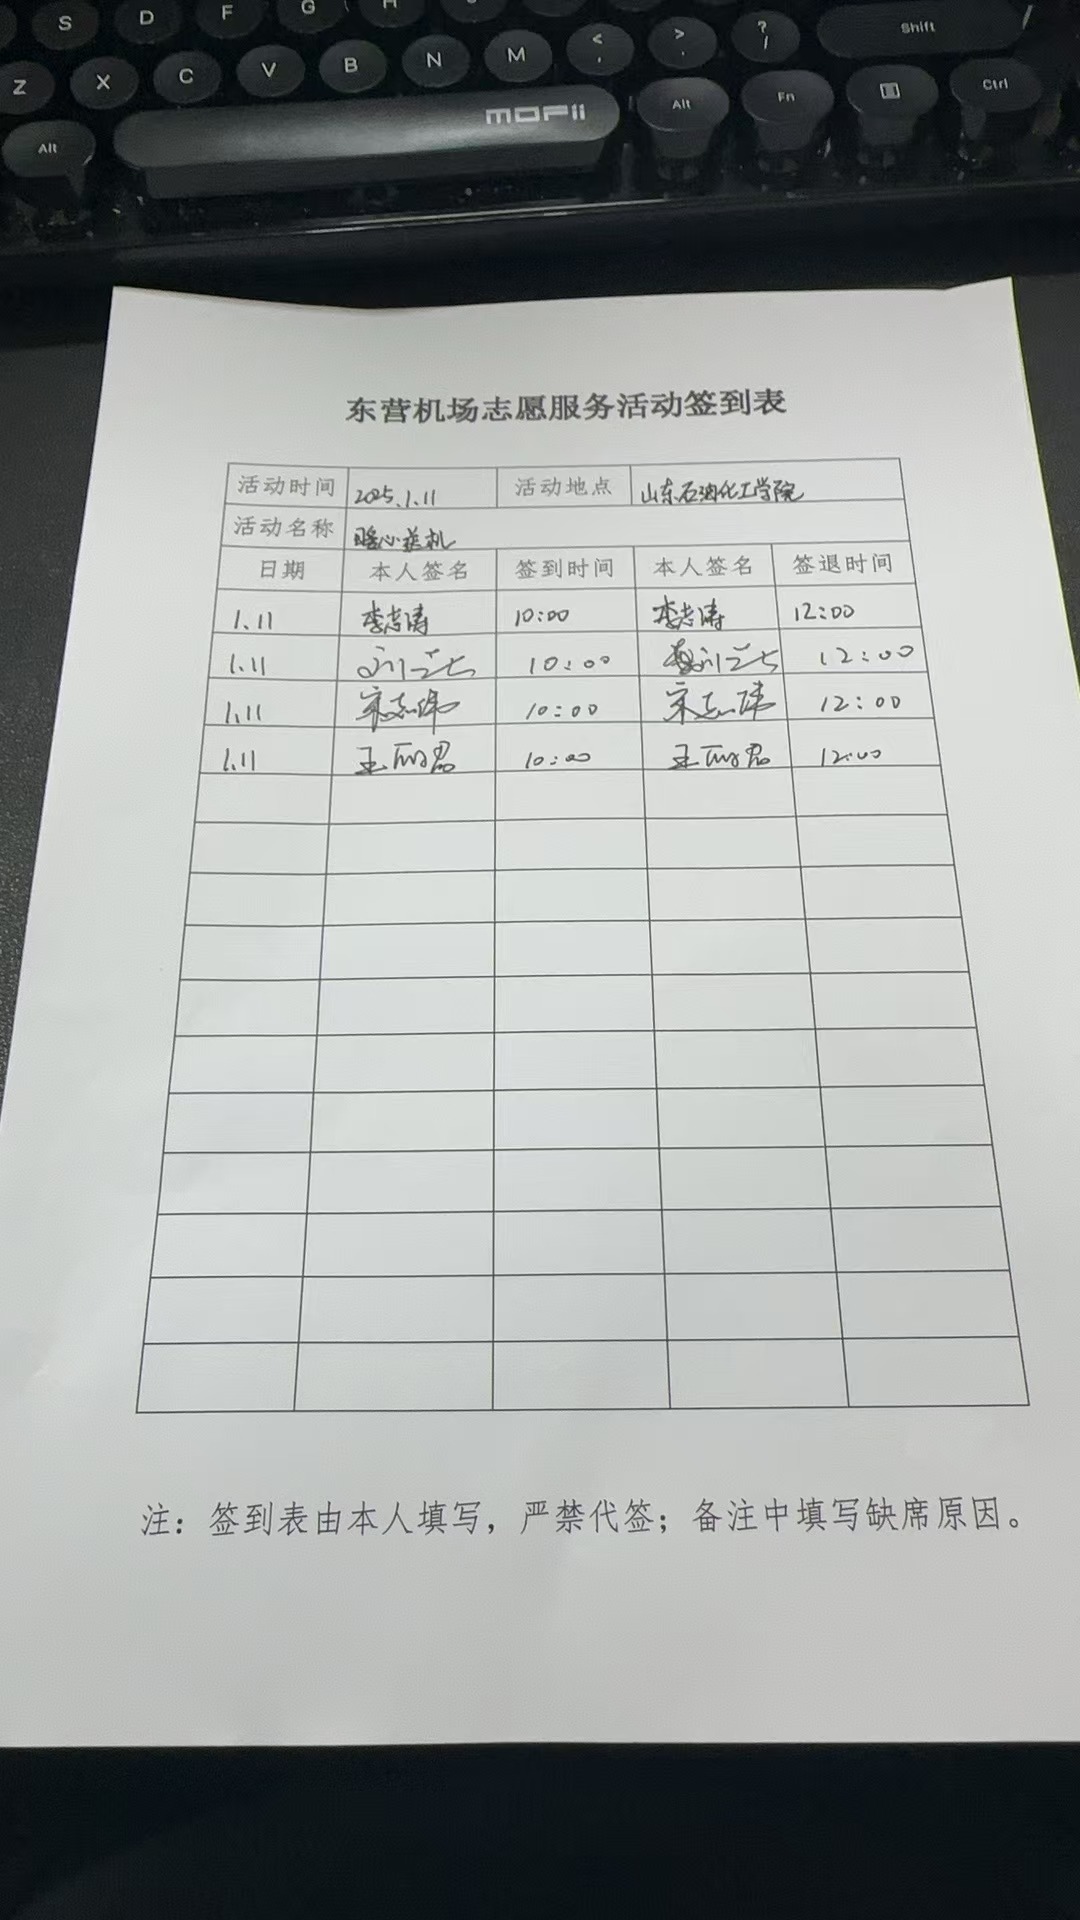 S D F G H
Z X C V B N M < , > . ? / Shift
Alt MOFii Alt Fn Ctrl
东营机场志愿服务活动签到表
活动时间 2025.1.11 活动地点 山东石油化工学院
活动名称 暖心送机
日期 本人签名 签到时间 本人签名 签退时间
1.11 李志涛 10:00 李志涛 12:00
1.11 10:00 12:00
1.11 宋志玮 10:00 宋志玮 12:00
1.11 王丽君 10:00 王丽君 12:00
注：签到表由本人填写，严禁代签；备注中填写缺席原因。